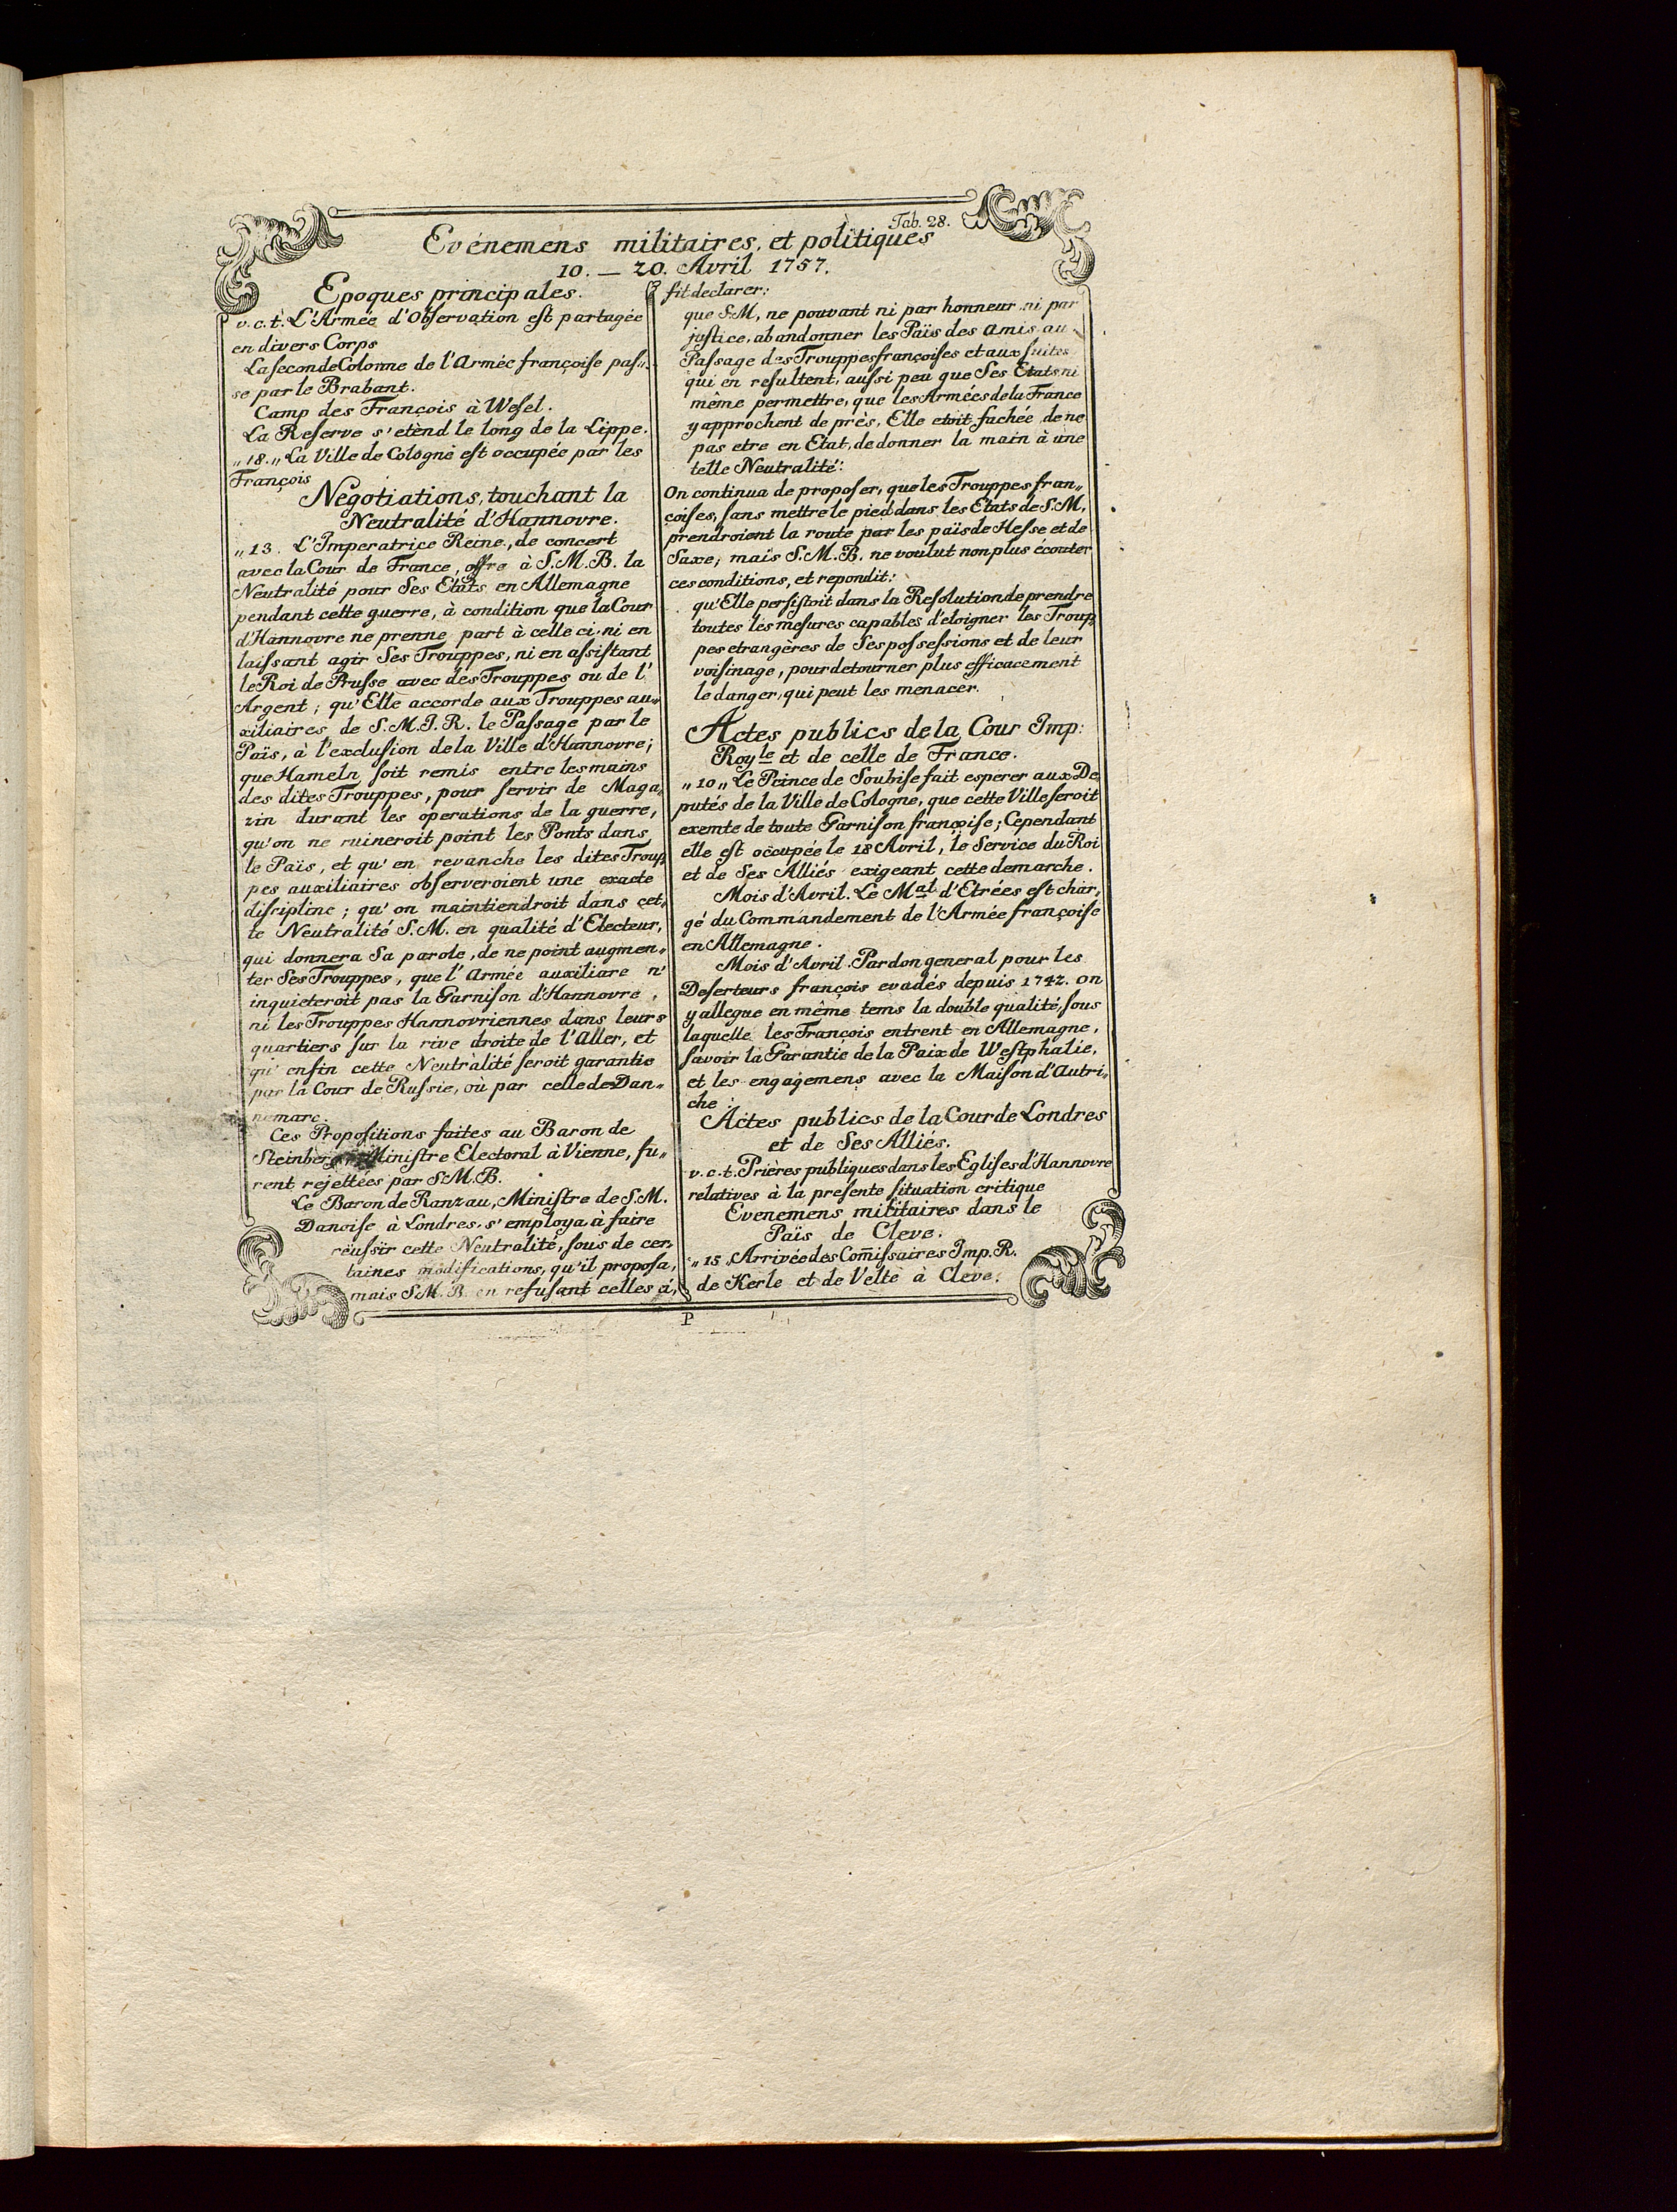 Tab. 28.
Evénemens militaires, et politiques
10. — 20. Avril 1757.
Epoques principales.
v.c.t. L'Armée d'Obſervation eſt partagée
en divers Corps
La ſeconde Colonne de l'Armée françoiſe paſ„
se par le Brabant.
Camp des François à Weſel.
La Reſerve s'etènd le long de la Lippe.
„18.„ La Ville de Cologne eſt occupée par les
François
Négotiations, touchant la
Neutralité d'Hannovre.
„13. L'Imperatrice Reine, de concert
avec la Cour de France, offre à S.M.B. la
Neutralité pour Ses Etats en Allemagne
pendant cette guerre, à condition que la Cour
d'Hannovre ne prenne part à celle ci, ni en
laiſsant agir Ses Trouppes, ni en aſsiſtant
le Roi de Pruſse avec des Trouppes ou de l'
Argent; qu'Elle accorde aux Trouppes au„
xiliaires de S.M.I.R. le Paſsage par le
Païs, à l'exclusion de la Ville d'Hannovre;
que Hameln ſoit remis entre les mains
des dites Trouppes, pour ſervir de Maga„
zin durant les operations de la guerre,
qu'on ne ruineroit point les Ponts dans
le Païs, et qu'en revanche les dites Troup„
pes auxiliaires obſerveroient une exacte
diſcipline; qu'on maintiendroit dans cet„
te Neutralité S.M. en qualité d'Electeur,
qui donnera Sa parole, de ne point augmen„
ter Ses Trouppes, que l'Armée auxiliare n'
inquieteroit pas la Garniſon d'Hannovre,
ni les Trouppes Hannovriennes dans leurs
quartiers ſur la rive droite de l'Aller, et
qu'enfin cette Neutralité ſeroit garantie
par la Cour de Ruſsie, où par celle de Dan„
nemarc.
Ces Propoſitions faites au Baron de
Steinberg Miniſtre Electoral à Vienne, fu„
rent rejettées par S.M.B.
Le Baron de Ranzau, Miniſtre de S.M.
Danoiſe à Londres, s'employa à faire
réuſsir cette Neutralité, ſous de cer„
taines modifications, qu'il propoſa,
mais S.M.B. en refuſant celles ci,
fit declarer:
que S.M. ne pouvant ni par honneur ni par
juſtice, abandonner les Païs des Amis au
Paſsage des Trouppes françoiſes et aux ſuites
qui en reſultent, auſsi peu que Ses Etats ni
même permettre, que les Armées de la France
y approchent de près, Elle etoit fachée de ne
pas etre en Etat, de donner la main à une
telle Neutralité:
On continua de propoſer, que les Trouppes fran„
çoiſes, ſans mettre le pied dans les Etats de S.M,
prendroient la route par les païs de Heſse et de
Saxe, mais S.M.B. ne voulut non plus écouter
ces conditions, et repondit:
qu'Elle perſiſtoit dans la Reſolution de prendre
toutes les meſures capables d'eloigner les Troup„
pes etrangères de Ses poſseſsions et de leur
voiſinage, pour detourner plus efficacement
le danger, qui peut les menacer.
Actes publics de la Cour Imp:
Roy<sup>le</sup> et de celle de France.
„10„ Le Prince de Soubiſe fait esperer aux De„
putés de la Ville de Cologne, que cette Ville ſeroit
exemte de toute Garniſon françoiſe; Cependant
elle eſt occupée le 18 Avril, le Service du Roi
et de Ses Alliés exigeant cette demarche.
Mois d'Avril. Le M<sup>al</sup> d'Etrées eſt char„
gé du Commandement de l'Armée françoiſe
en Allemagne.
Mois d'Avril. Pardon general pour les
Deſerteurs françois evadés depuis 1742. On
y allegue en même tems la double qualité, ſous
laquelle les François entrent en Allemagne,
ſavoir la Garantie de la Paix de Weſtphalie,
et les engagemens avec la Maiſon d'Autri„
che:
Actes publics de la Cour de Londres
et de Ses Alliés.
v.c.t. Prières publiques dans les Egliſes d'Hannovre
relatives à la preſente ſituation critique
Evenemens militaires dans le
Païs de Cleve.
„15 Arrivée des Com̄iſsaires Imp.R.
de Kerle et de Velte à Cleve.
P